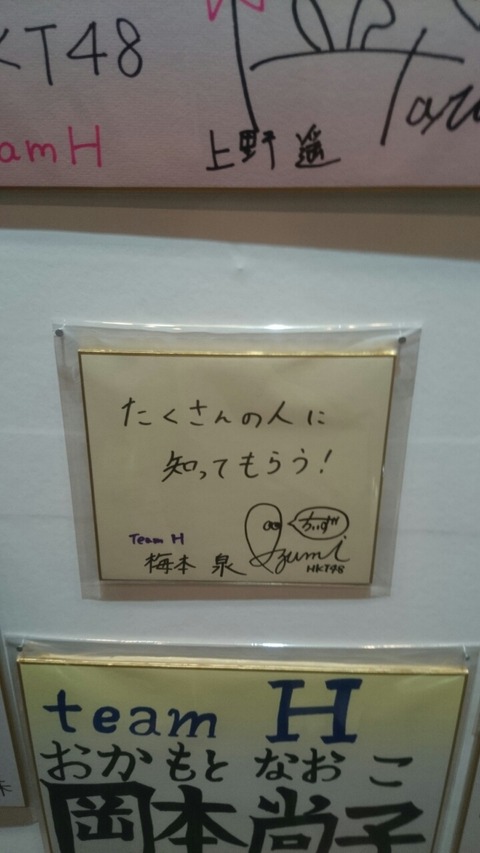 KT48
amH
上野 遥
たくさんの人に
知ってもらう!
ちぃず
Team H
梅本 泉
Izumi
HKT48
team H
おかもと なおこ
岡本尚子